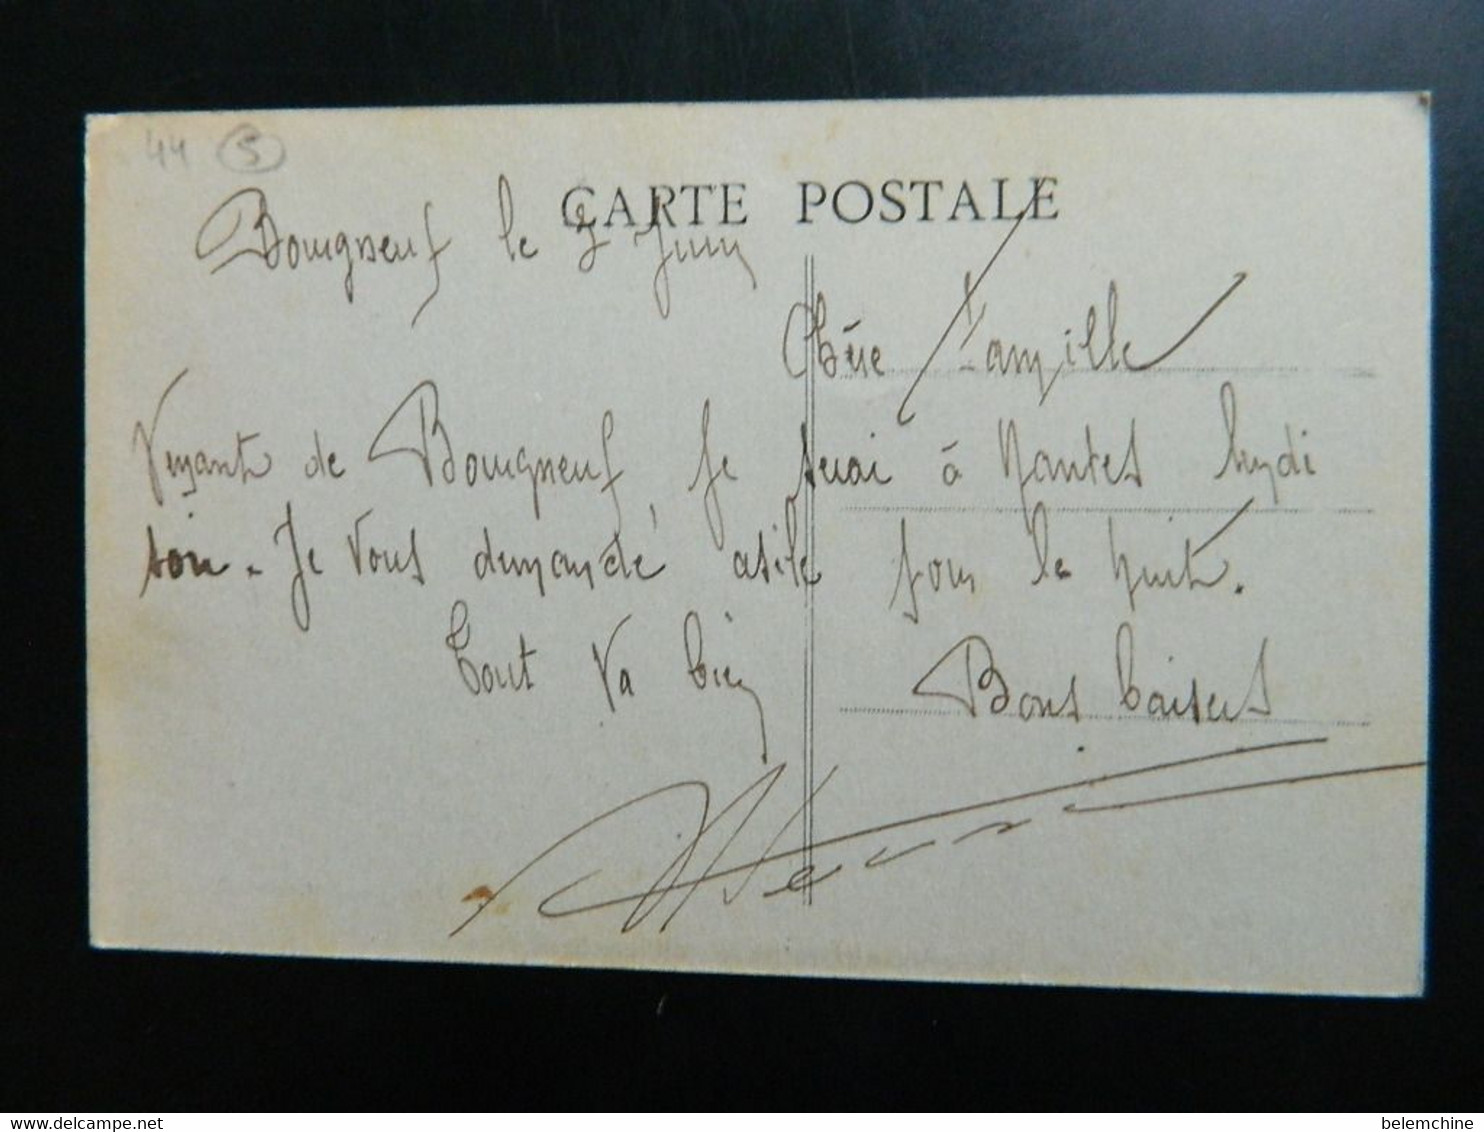 44 5
CARTE POSTALE
Bourgneuf le 2 Juin
Chère Famille
Venant de Bourgneuf je serai à Nantes lundi
soir. Je vous demande asile pour la nuit.
Tout va bien Bons baisers
delcampe.net
belemchine